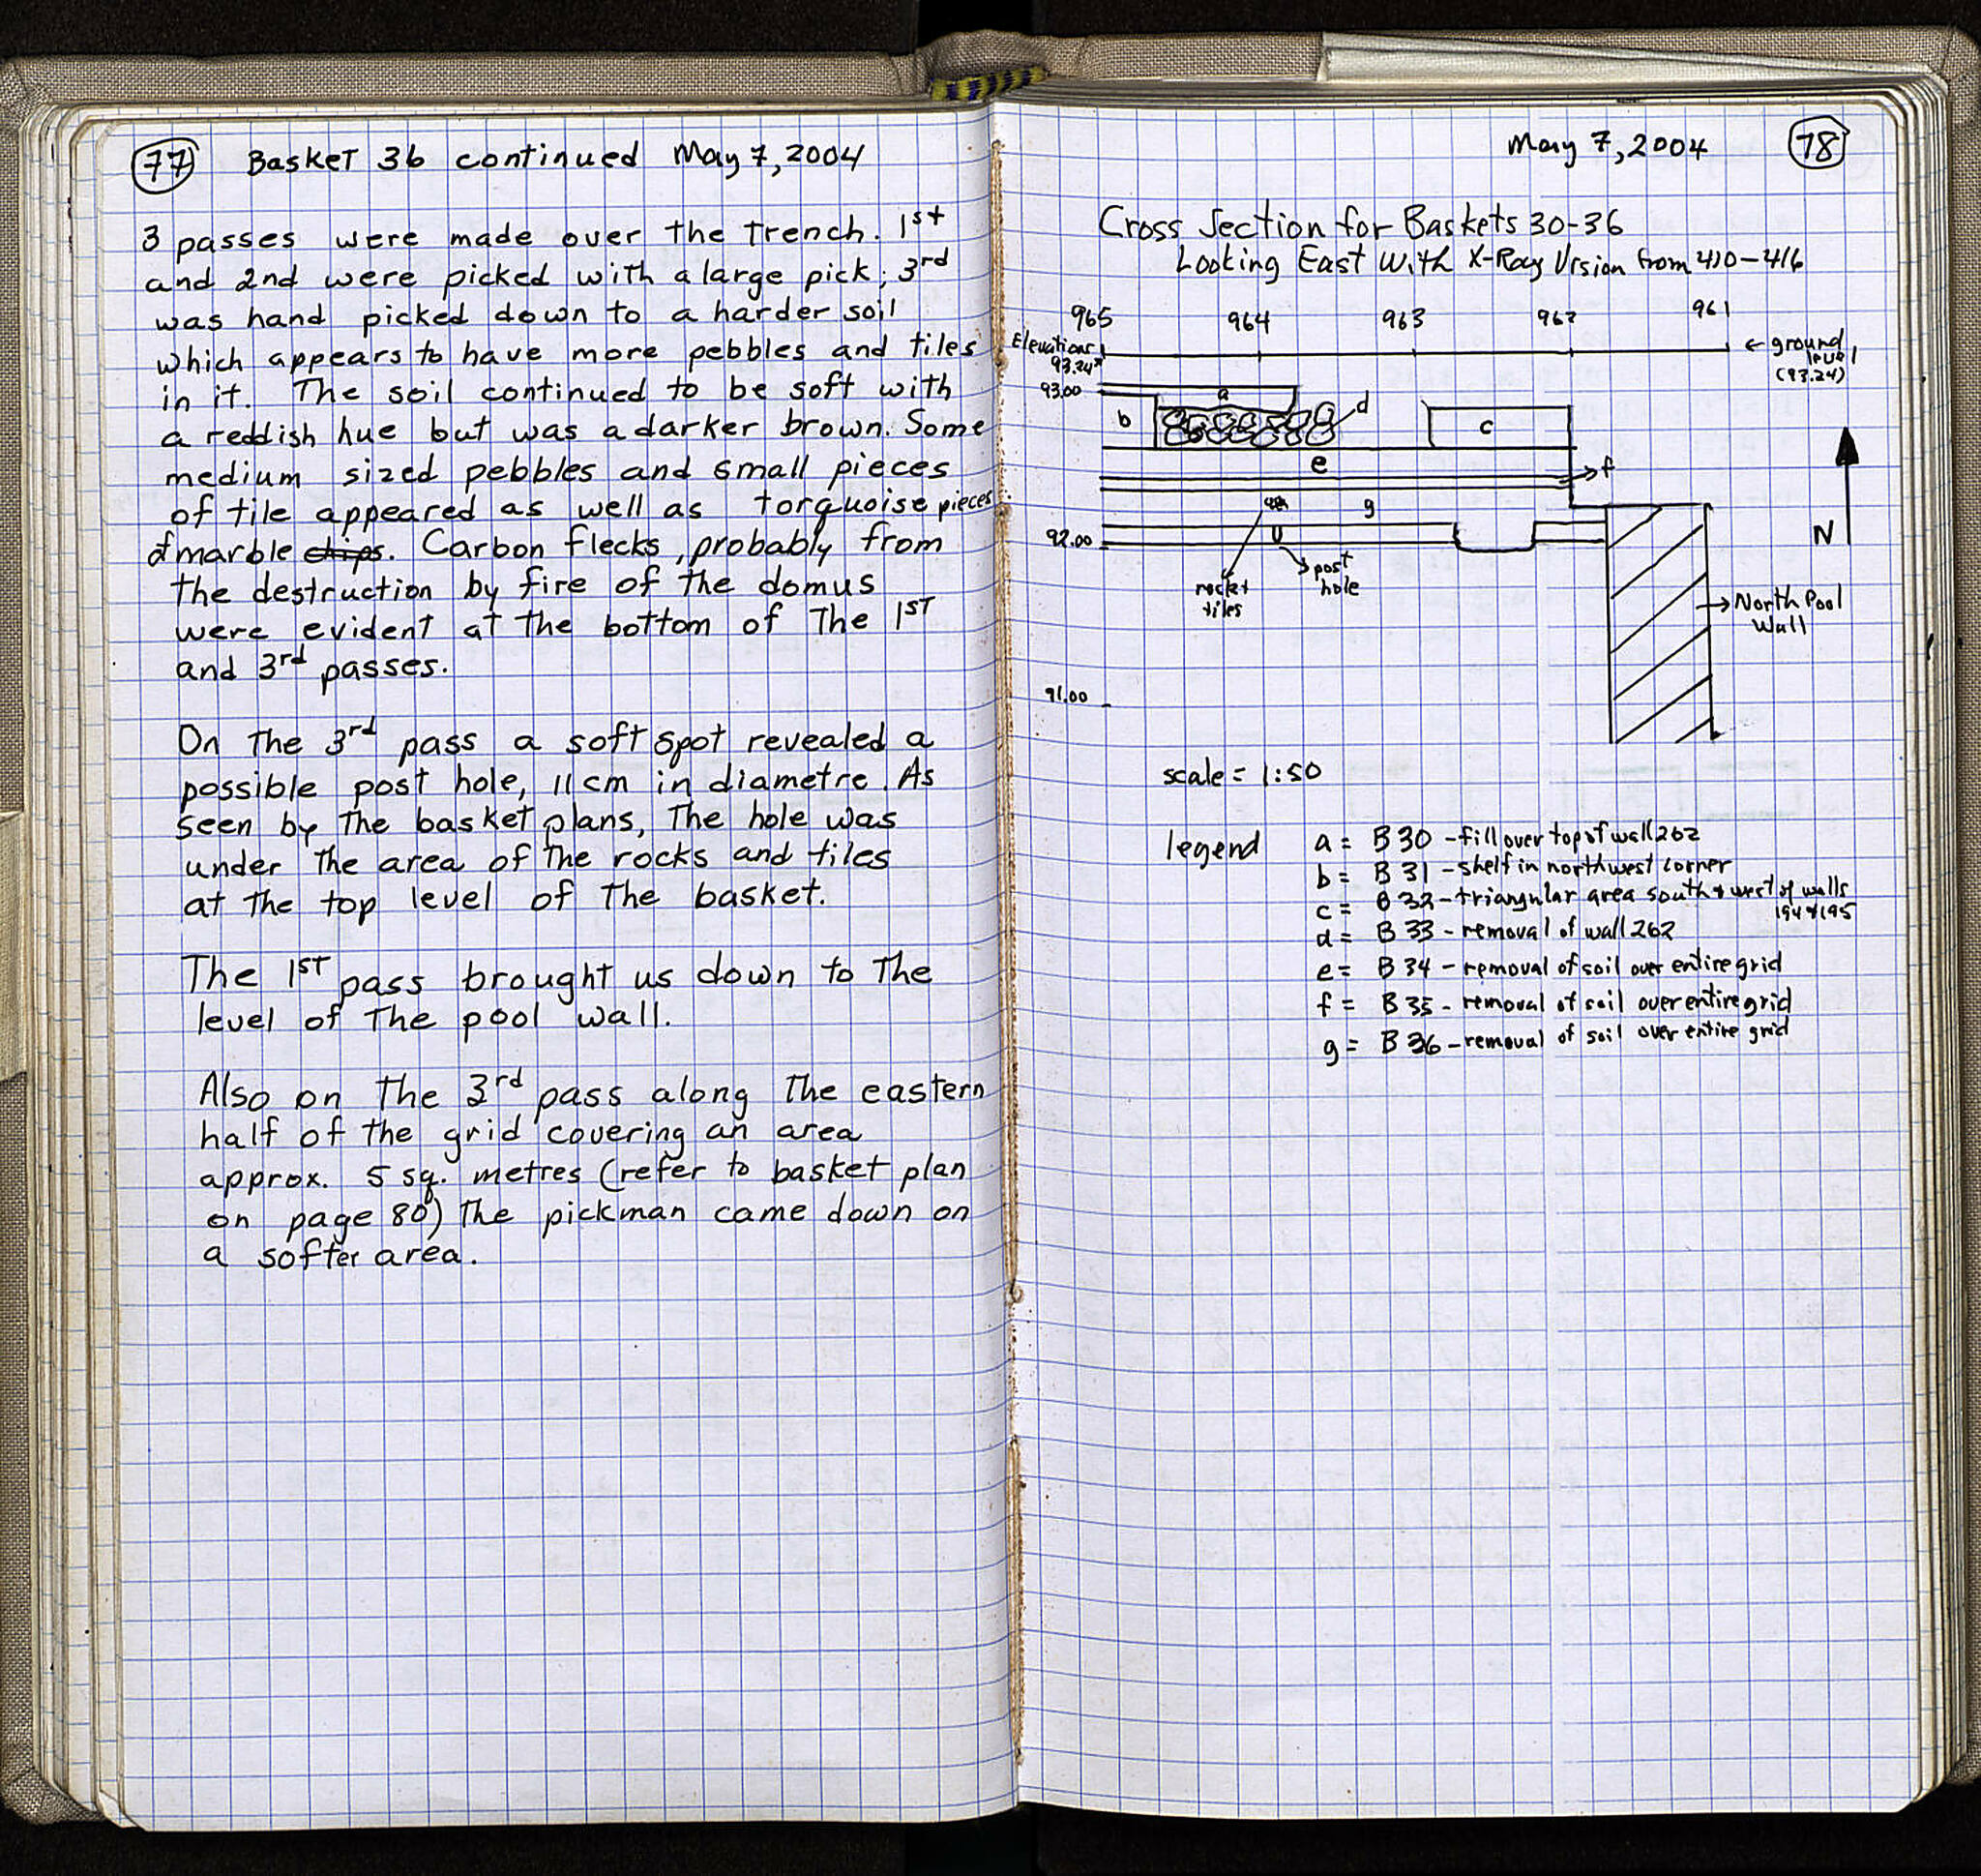 77 Basket 36 continued May 7, 2004
3 passes were made over the trench. 1st
and 2nd were picked with a large pick; 3rd
was hand picked down to a harder soil
which appears to have more pebbles and tiles
in it. The soil continued to be soft with
a reddish hue but was a darker brown. Some
medium sized pebbles and small pieces
of tile appeared as well as torquoise pieces
of marble chips. Carbon flecks, probably from
the destruction by fire of the domus
were evident at the bottom of the 1st
and 3rd passes.
On the 3rd pass a soft spot revealed a
possible post hole, 11 cm in diametre. As
seen by the basket plans, the hole was
under the area of the rocks and tiles
at the top level of the basket.
The 1st pass brought us down to the
level of the pool wall.
Also on the 3rd pass along the eastern
half of the grid covering an area
approx. 5 sq. metres (refer to basket plan
on page 80) the pickman came down on
a softer area.
May 7, 2004 78
Cross Section for Baskets 30-36
Looking East With X-Ray Vision from 410-416
965 964 963 962 961
Elevations
93.24
← ground
level
(93.24)
93.00
a
d
b
c
e
f
g
92.00
N
rocks +
tiles
post
hole
North Pool
Wall
91.00
scale = 1:50
legend a = B 30 - fill over top of wall 262
b = B 31 - shelf in northwest corner
c = B 32 - triangular area south & west of walls
194 & 195
d = B 33 - removal of wall 262
e = B 34 - removal of soil over entire grid
f = B 35 - removal of soil over entire grid
g = B 36 - removal of soil over entire grid